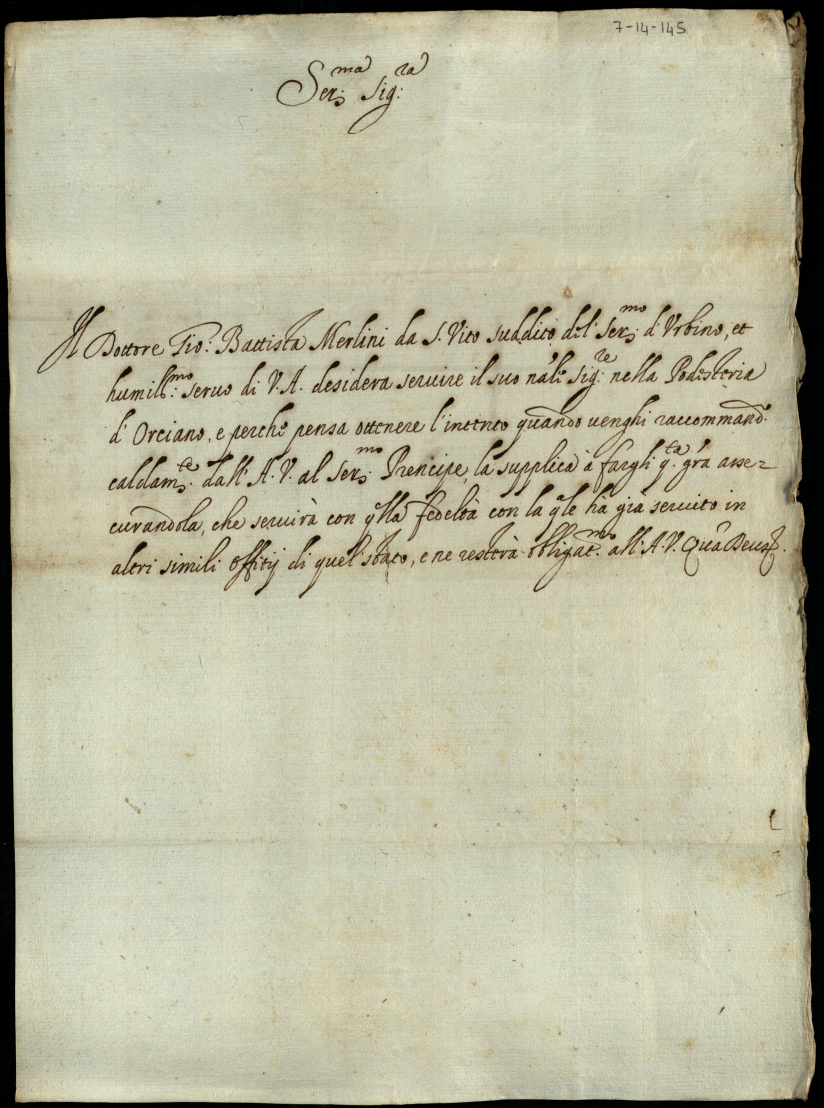 7-14-145
Ser:ma Sig:ra
Il Dottore Gio: Battista Merlini da S. Vito suddito del Ser:mo d'Urbino, et
humill:mo seruo di V. A. desidera seruire il suo nãle Sig:re nella Podesteria
d'Orciano, e perche pensa ottenere l'intento quando uenghi raccommand.
caldam:te dall'A. V. al Ser:mo Prencipe, la supplica à fargli q.ta grã asse=
curandola, che seruirà con q̃lla fedeltà con la q̃le hà già seruito in
altri simili offitij di quel stato, e ne resterà obligat:mo all'A. V. Quã Deus